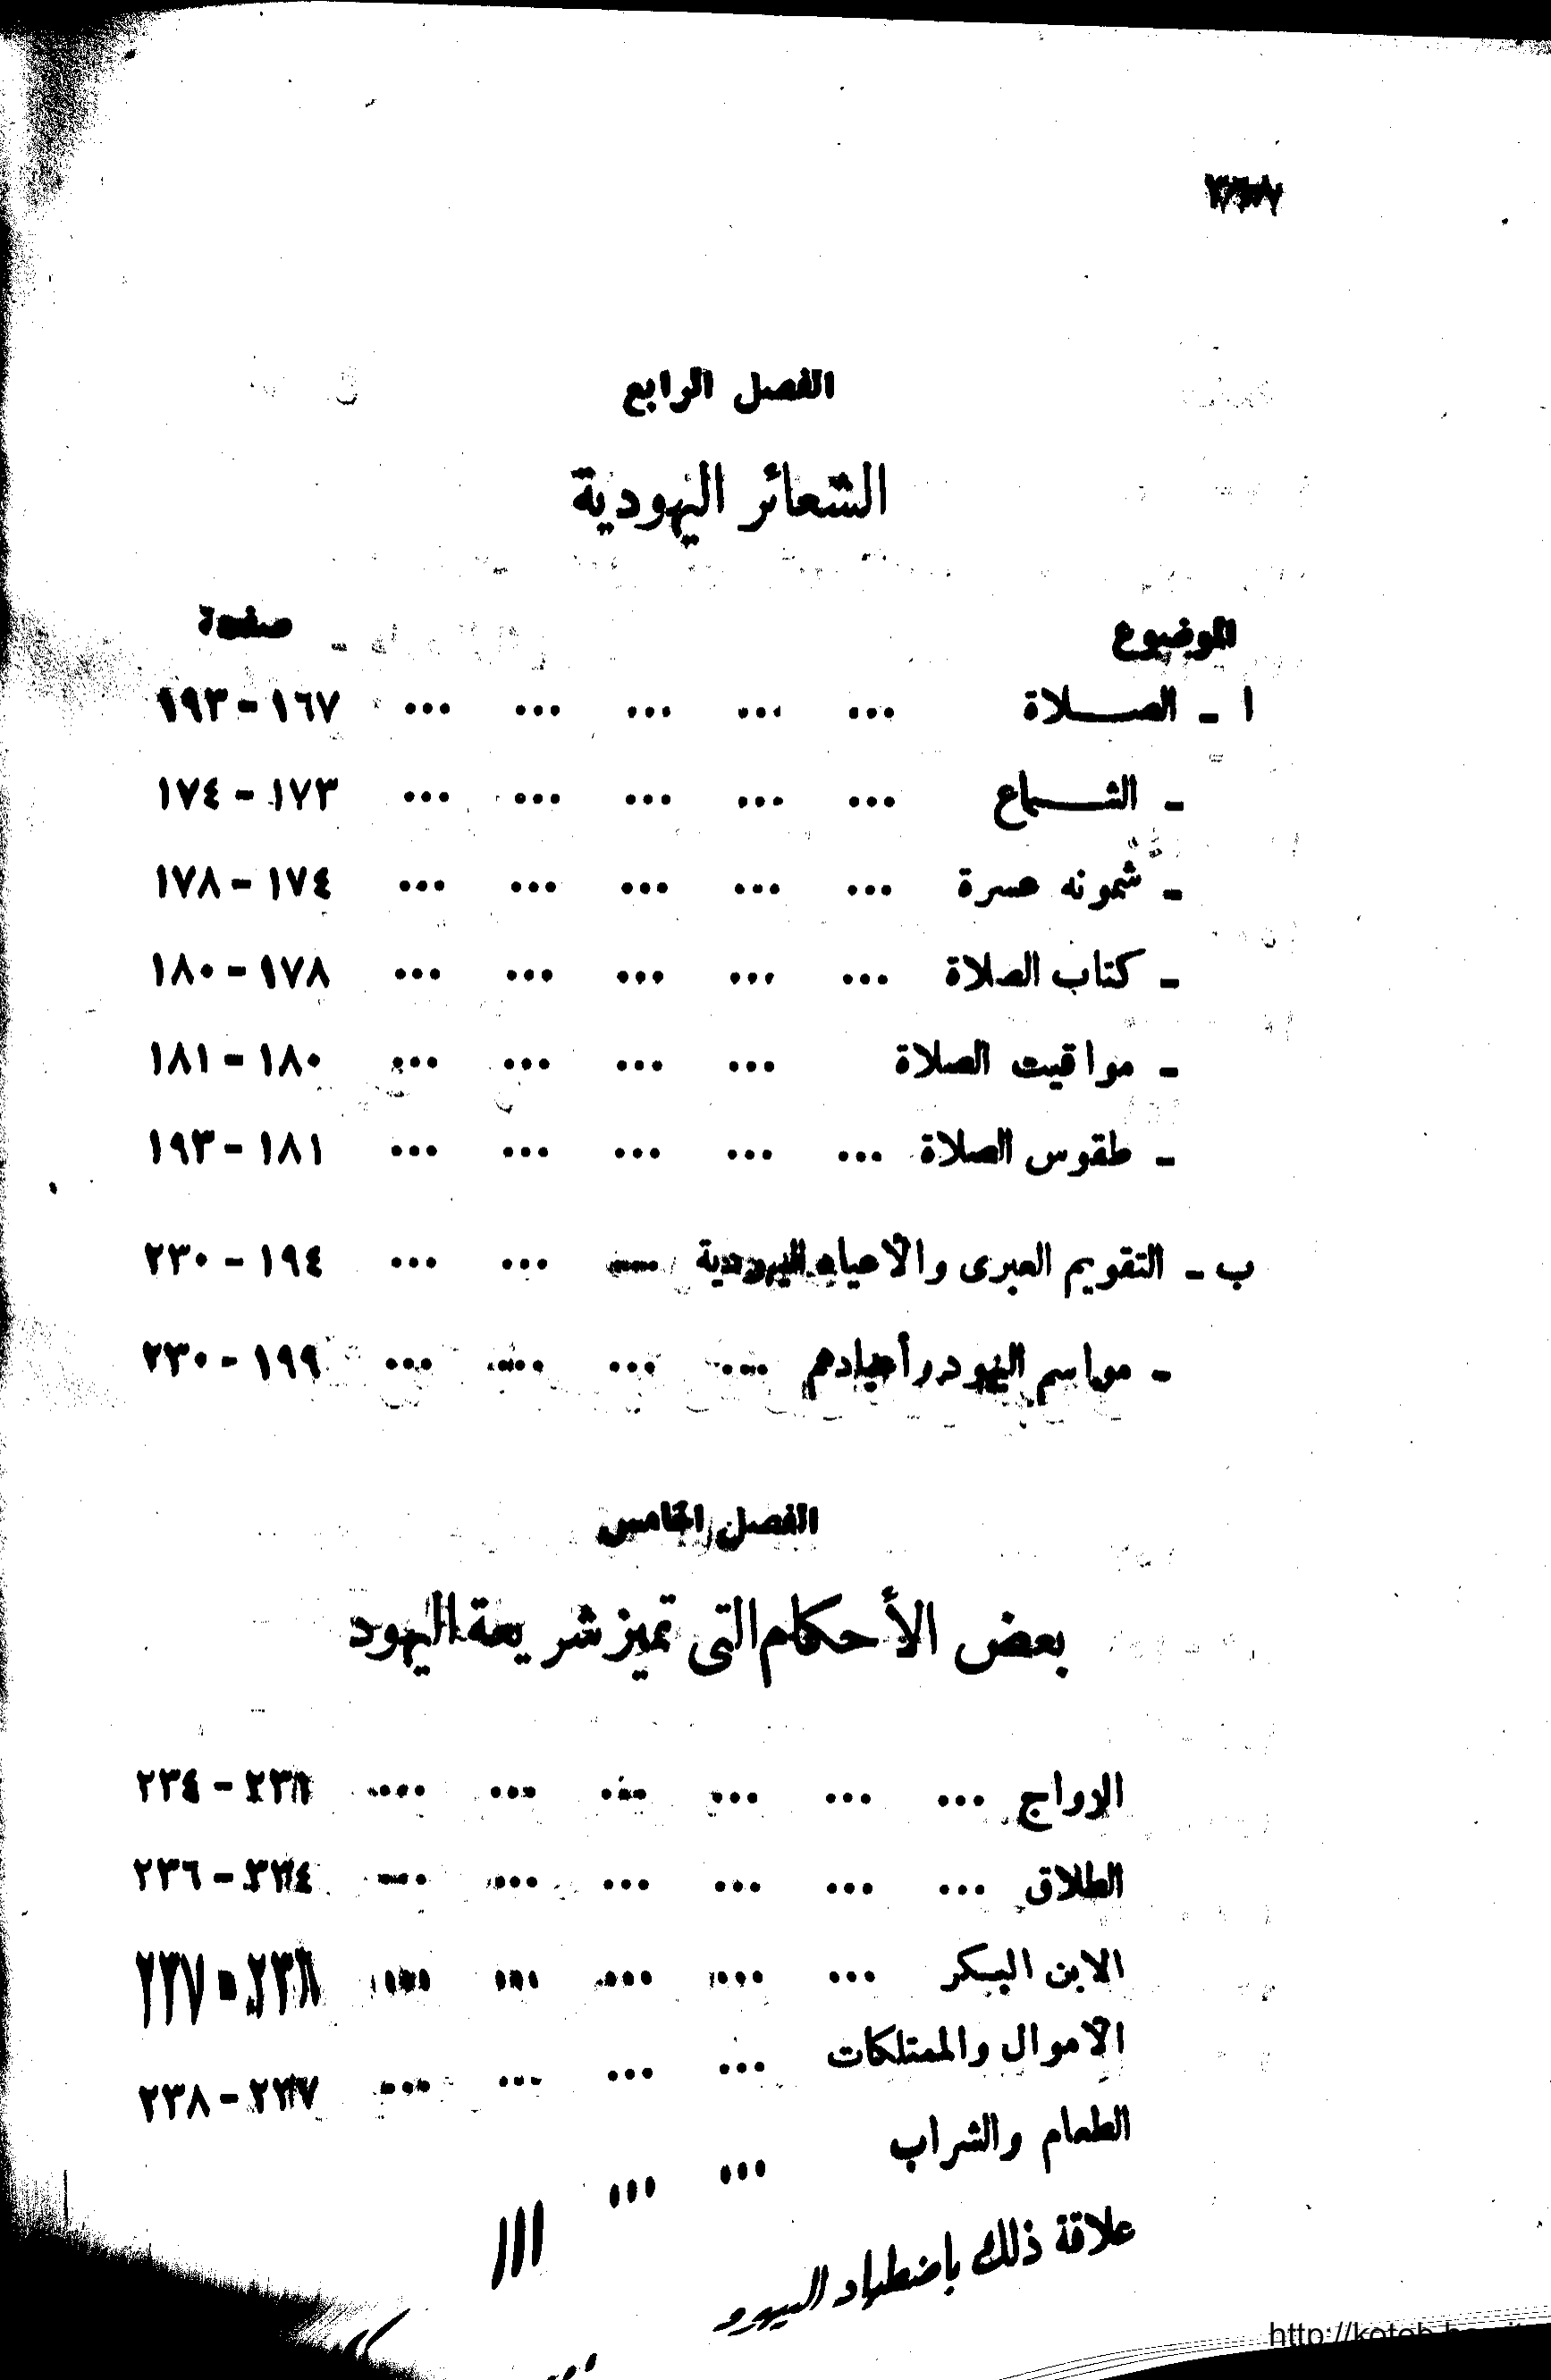 الفصل الرابع
الشعائر اليهودية
الموضوع صفحة
ا ـ الصــلاة ... ... ... ... ... ١٦٧ – ١٩٣
ـ الشــماع ... ... ... ... ... ١٧٣ – ١٧٤
ـ شمونه عسرة ... ... ... ... ... ١٧٤ – ١٧٨
ـ كتاب الصلاة ... ... ... ... ... ١٧٨ – ١٨٠
ـ مواقيت الصلاة ... ... ... ... ١٨٠ – ١٨١
ـ طقوس الصلاة ... ... ... ... ... ١٨١ – ١٩٣
ب ـ التقويم العبرى والأعياد اليهودية ... ... ... ١٩٤ – ٢٣٠
ـ مواسم اليهود وأعيادهم ... ... ... ... ١٩٩ – ٢٣٠
الفصل الخامس
بعض الأحكام التى تميز شريعة اليهود
الزواج ... ... ... ... ... ... – ٢٣٤
الطلاق ... ... ... ... ... ... ٢٣٤ – ٢٣٦
الابن البكر ... ... ... ... ... – ٢٣٧
الأموال والممتلكات ... ... ... ... ٢٣٧ – ٢٣٨
الطعام والشراب ... ... ...
علاقة ذلك باضطهاد اليهود